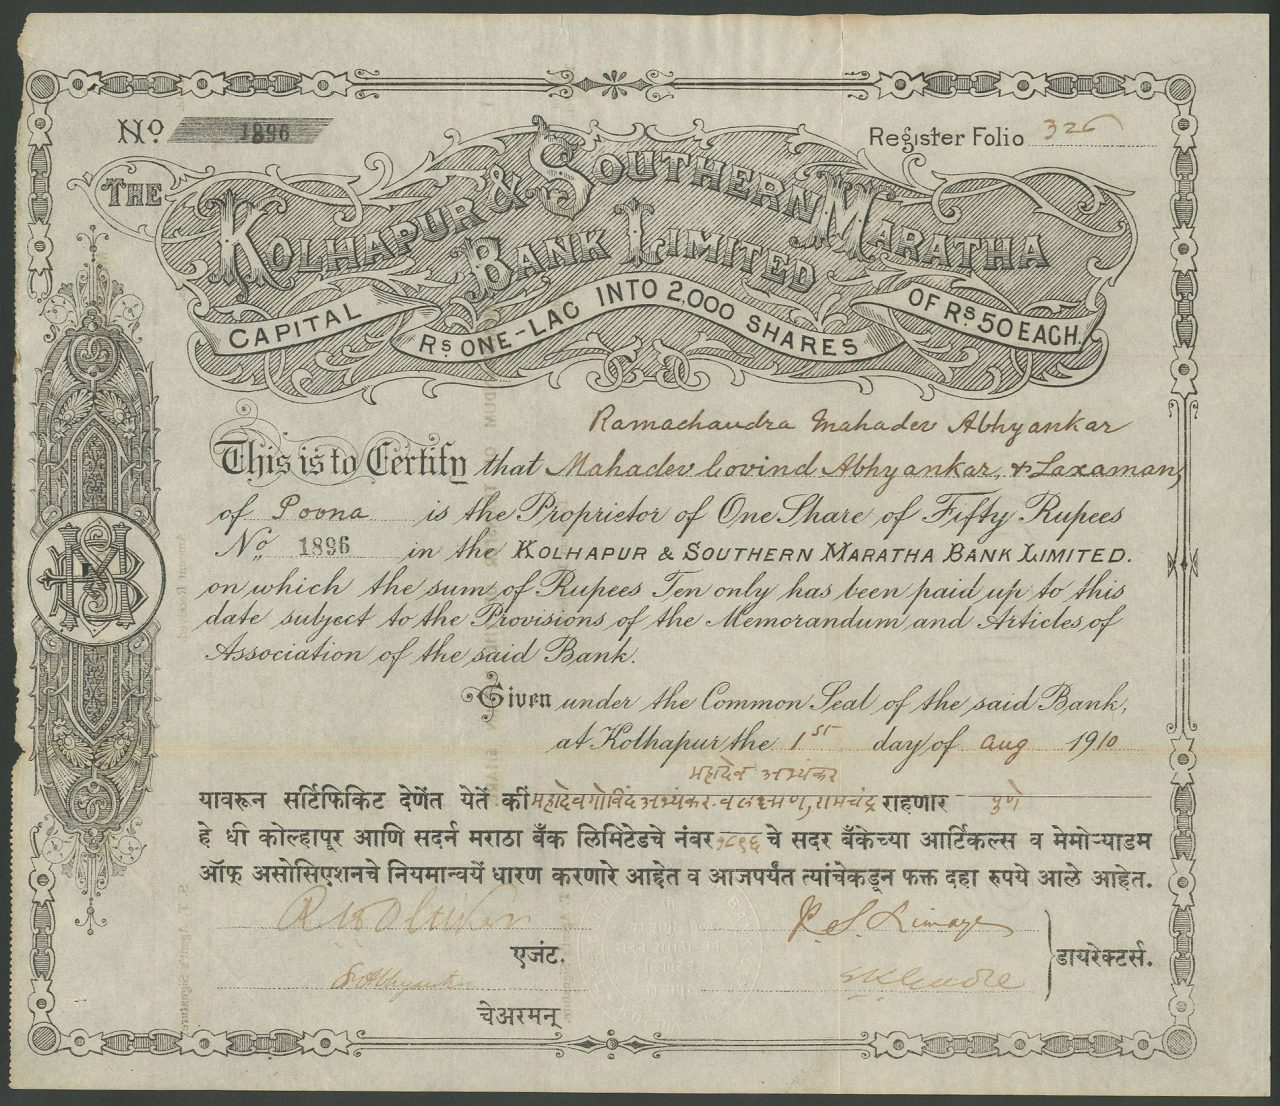 No. 1896
Register Folio 326
THE
KOLHAPUR & SOUTHERN MARATHA
BANK LIMITED
CAPITAL RS ONE-LAC INTO 2,000 SHARES OF RS 50 EACH.
Ramachandra Mahadev Abhyankar
This is to Certify that Mahadev Govind Abhyankar, & Laxaman,
of Poona is the Proprietor of One Share of Fifty Rupees
No. 1896 in the KOLHAPUR & SOUTHERN MARATHA BANK LIMITED.
on which the sum of Rupees Ten only has been paid up to this
date subject to the Provisions of the Memorandum and Articles of
Association of the said Bank.
Given under the Common Seal of the said Bank,
at Kolhapur the 1st day of Aug 1910
महादेव अभ्यंकर
यावरून सर्टिफिकिट देणेंत येतें कीं महादेव गोविंद अभ्यंकर व लक्ष्मण, रामचंद्र राहणार पुणे
हे धी कोल्हापूर आणि सदर्न मराठा बँक लिमिटेडचे नंबर १८९६ चे सदर बँकेच्या आर्टिकल्स व मेमोऱ्याडम
ऑफ् असोसिएशनचे नियमान्वयें धारण करणारे आहेत व आजपर्यंत त्यांचेकडून फक्त दहा रुपये आले आहेत.
P. S. Limaye
एजंट.
डायरेक्टर्स.
चेअरमन्